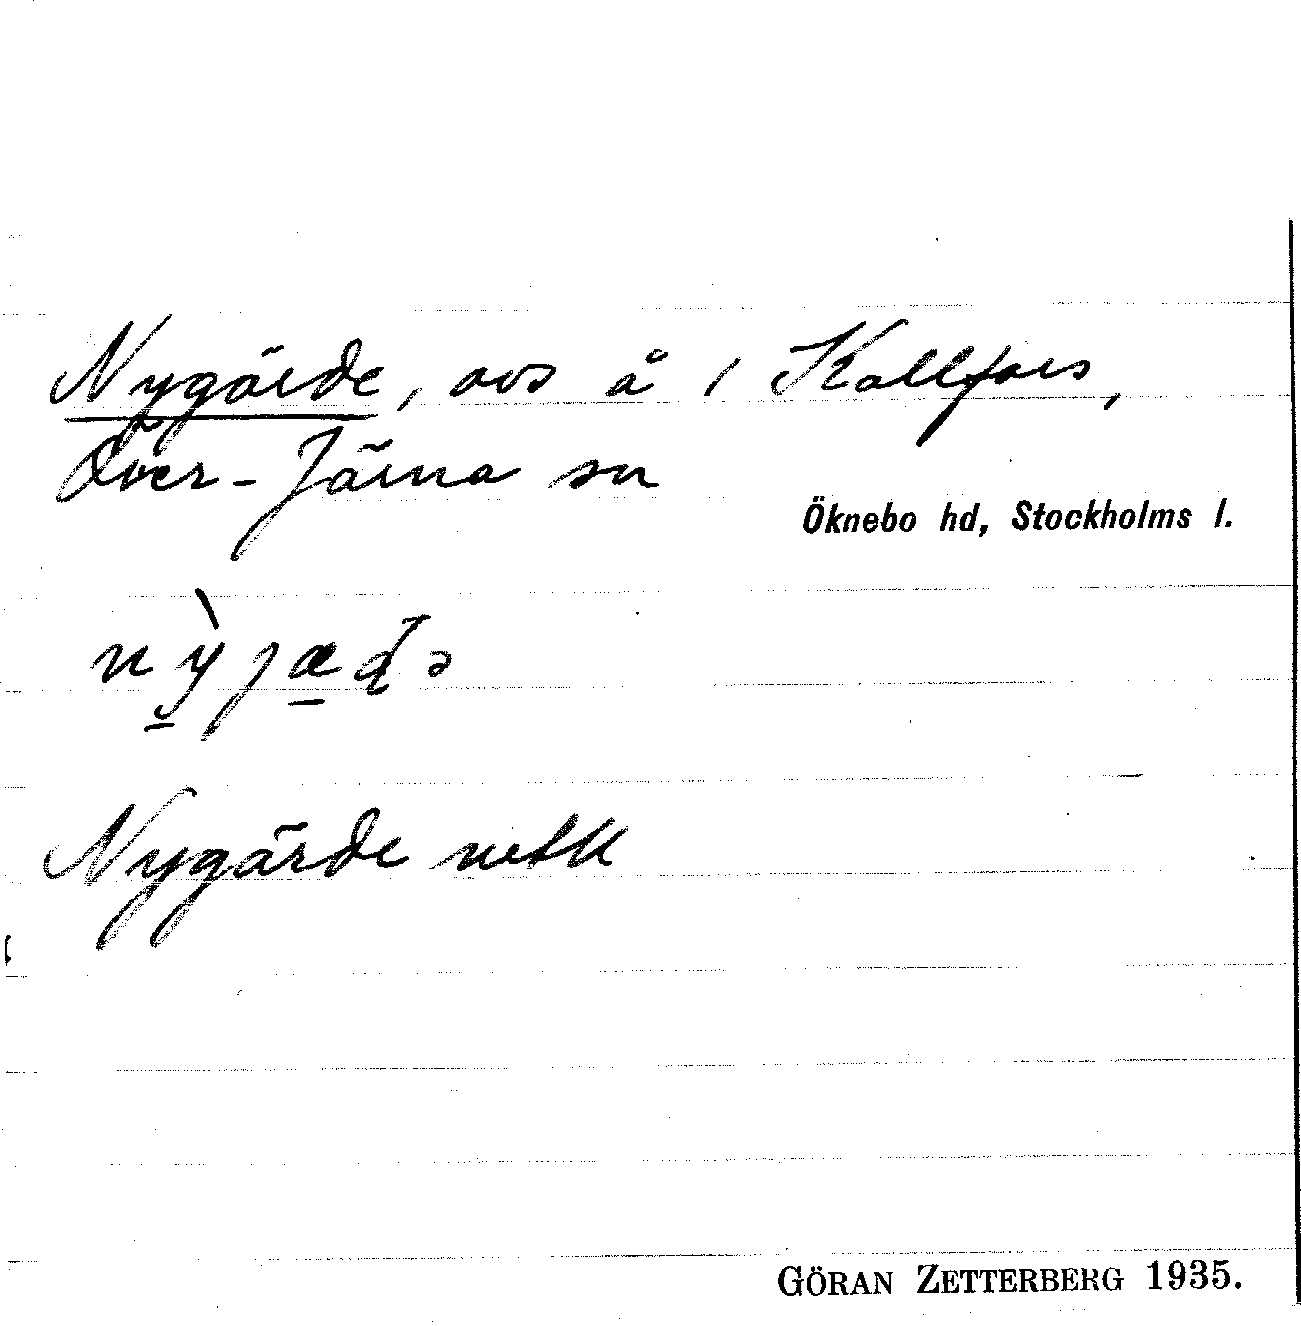 Nygärde, avs å 1 Kallfors,
Över-Järna sn
Öknebo hd, Stockholms l.
Nygärde netk
GÖRAN ZETTERBERG 1935.